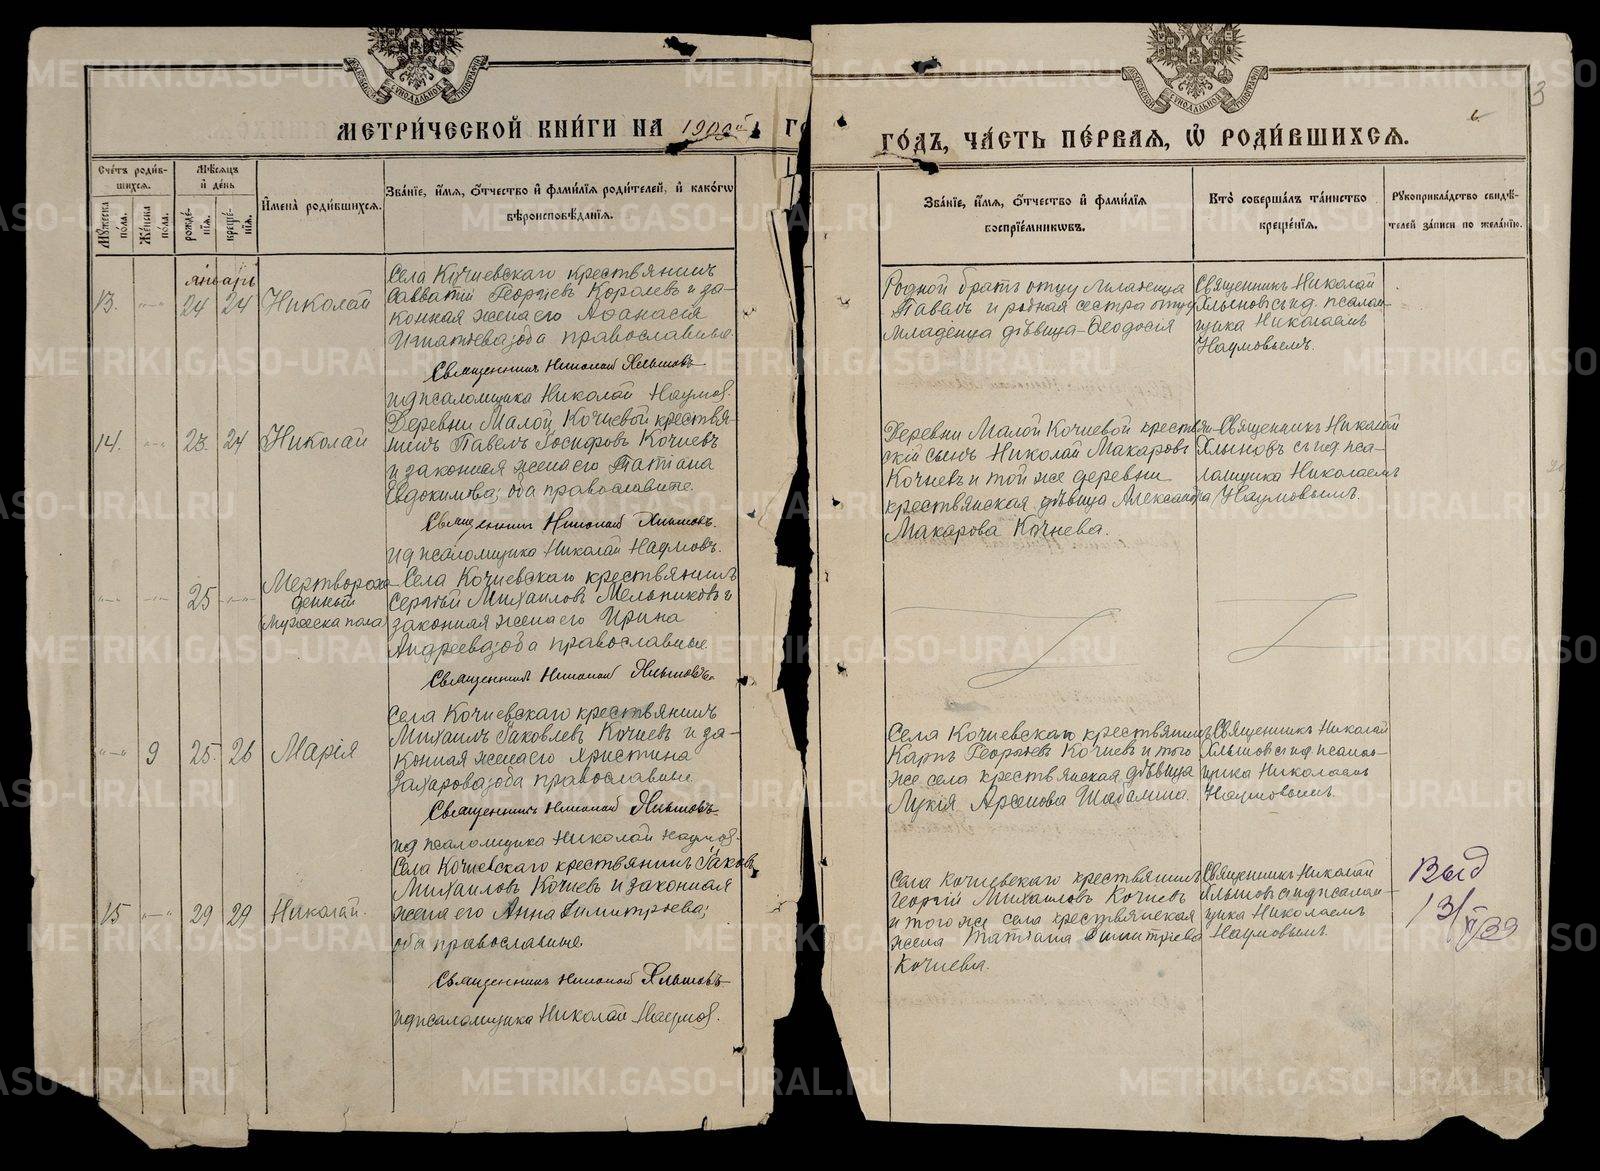 МЕТРИ́ЧЕСКОЙ КНИ́ГИ НА 190
ГО́ДЪ, ЧА́СТЬ ПЕ́РВАѦ, Ѡ҆ РОДИ́ВШИХСѦ.
Сче́тъ роди́в-
шихсѧ.
Мѣ́сѧцъ
и҆ де́нь
И҆мена̀ роди́вшихсѧ.
Зва́нїе, и҆́мѧ, ѻ҆́тчество и҆ фами́лїѧ роди́телей, и҆ како́гѡ
вѣроисповѣ́данїѧ.
Мꙋ́жеска
по́ла.
Же́нска
по́ла.
рожде́-
нїѧ.
креще́-
нїѧ.
Зва́нїе, и҆́мѧ, ѻ҆́тчество и҆ фами́лїѧ
воспрїе́мникѡвъ.
Кто̀ соверша́лъ та́инство
креще́нїѧ.
Рꙋкоприкла́дство свидѣ́-
телей за́писи по жела́нїю.
Январь
13.
24
24
Николай
Села Кочневскаго крестьянинъ
Савватій Георгіевъ Королевъ и за-
конная жена его Афанасія
Игнатьева; оба православные.
Священникъ Николай Хлыновъ
и д псаломщика Николай Наумов.
Родной братъ отцу младенца
Павелъ и родная сестра отцу
младенца дѣвица Ѳеодосія
Священникъ Николай
Хлыновъ съ и д. псалом-
щика Николаемъ
Наумовымъ.
14.
23
24
Николай
Деревни Малой Кочневой крестья-
нинъ Павелъ Іосифовъ Кочневъ
и законная жена его Татіана
Евдокимова; оба православные.
Священникъ Николай Хлыновъ.
и д псаломщика Николай Наумовъ.
Деревни Малой Кочневой крестьян-
скій сынъ Николай Макаровъ
Кочневъ и той же деревни
крестьянская дѣвица Александра
Макарова Кочнева.
Священникъ Николай
Хлыновъ съ и д. пса-
ломщика Николаемъ
Наумовымъ.
25
Мертворож-
денный
Мужеска пола
Села Кочневскаго крестьянинъ
Сергѣй Михаиловъ Мельниковъ и
законная жена его Ирина
Андреева; оба православные.
Священникъ Николай Хлыновъ
9
25.
26
Марія
Села Кочневскаго крестьянинъ
Михаилъ Іаковлевъ Кочневъ и за-
конная жена его Христина
Захарова; оба православные
Священникъ Николай Хлыновъ
и д псаломщика Николай Наумов.
Села Кочневскаго крестьянинъ
Карпъ Георгіевъ Кочневъ и того
же села крестьянская дѣвица
Лукія Арсенова Шабалина.
Священникъ Николай
Хлыновъ съ и д. псалом-
щика Николаемъ
Наумовымъ.
15
29
29
Николай.
Села Кочневскаго крестьянинъ Іаковъ
Михаиловъ Кочневъ и законная
жена его Анна Димитріева;
оба православные
Священникъ Николай Хлыновъ
и д псаломщика Николай Наумов.
Села Кочневскаго крестьянинъ
Георгій Михаиловъ Кочневъ
и того же села крестьянская
жена Татіана Димитріева
Кочнева.
Священникъ Николай
Хлыновъ съ и д псалом-
щика Николаемъ
Наумовымъ.
Выд
METRIKI.GASO-URAL.RU